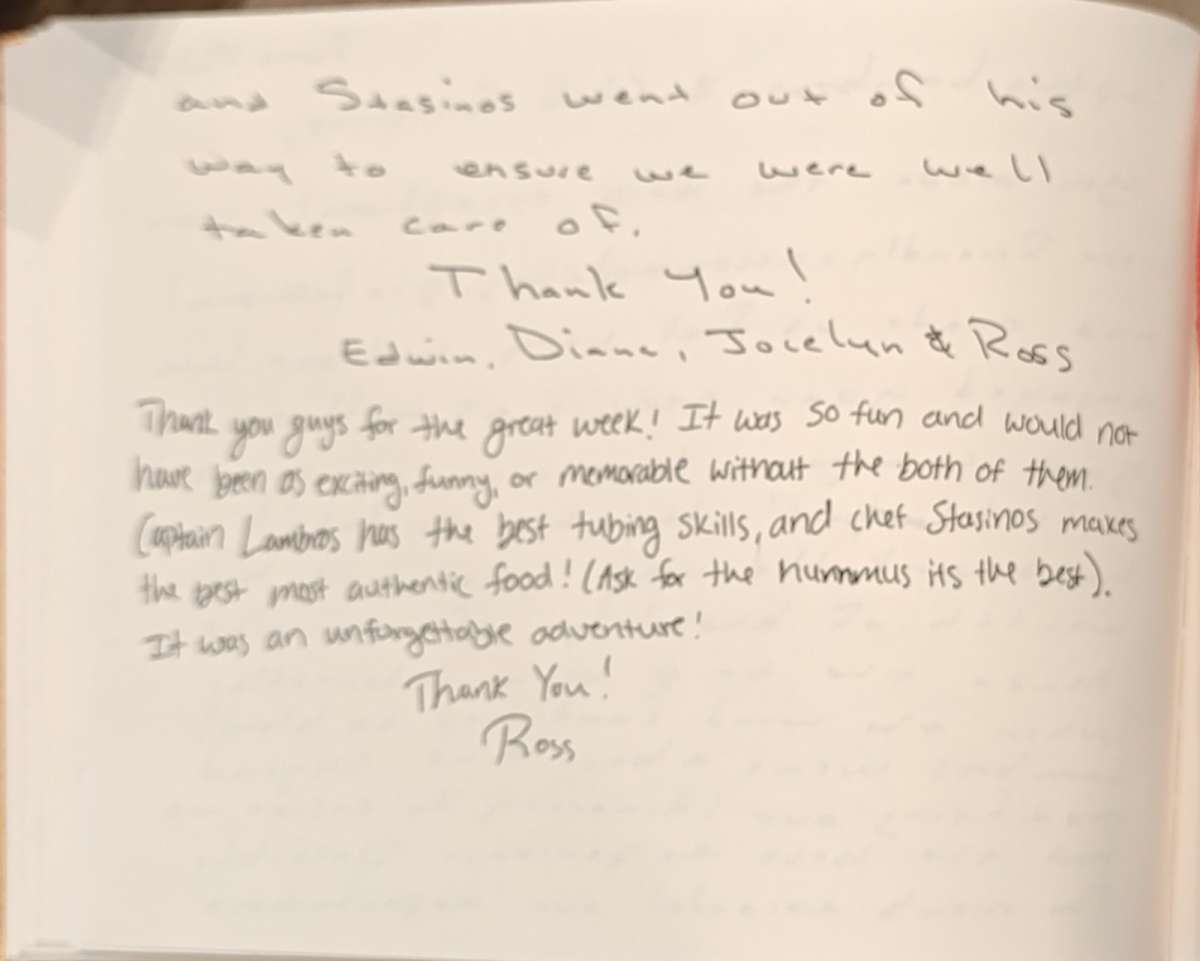 and Stasinos went out of his
way to ensure we were well
taken care of.
Thank You!
Edwin, Diane, Jocelyn & Ross
Thank you guys for the great week! It was so fun and would not
have been as exciting, funny, or memorable without the both of them.
Captain Lambros has the best tubing skills, and chef Stasinos makes
the best most authentic food! (Ask for the hummus its the best).
It was an unforgettable adventure!
Thank You!
Ross